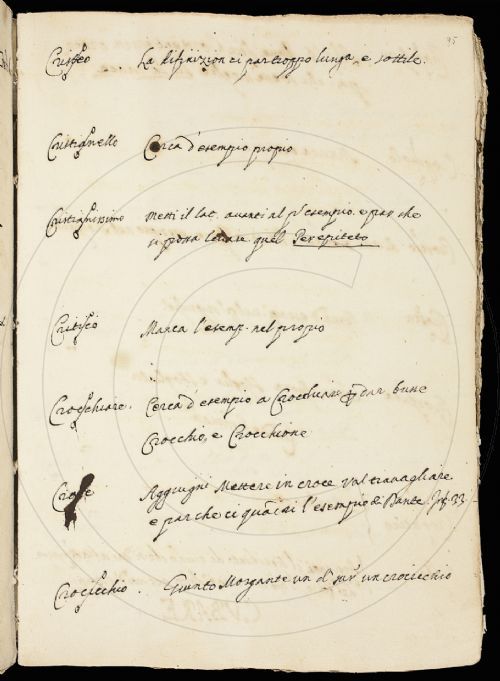 95
La difinizion ci par troppo lunga, e sottile.
Cristianello Cerca d'esempio proprio
Cristianissimo Metti il lat. avanti al p.° esempio. e par che
si possa levare quel Per epiteto
Manca l'esemp. nel proprio
Cerca d'esempio a dar bune
Crocchio, e Crocchione
Croce Aggiugni Mettere in croce val travagliare
e par che ci l'esempio di Dante Inf. 33
Giunto Morgante un dì un crocicchio